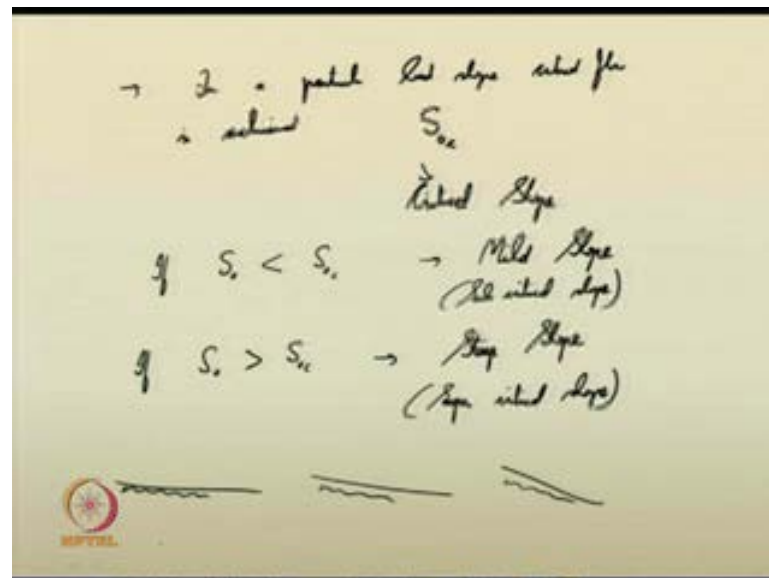 → In a particular bed slope critical flow
is achieved S₀c
Critical Slope
If S₀ < S₀c → Mild Slope
(Sub critical slope)
If S₀ > S₀c → Steep Slope
(Super critical slope)
NPTEL